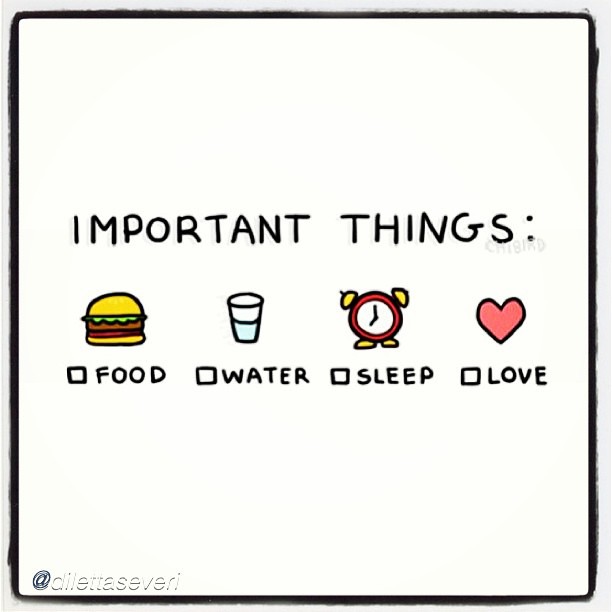 IMPORTANT THINGS:
CHIBIRD
FOOD WATER SLEEP LOVE
@dilettaseveri